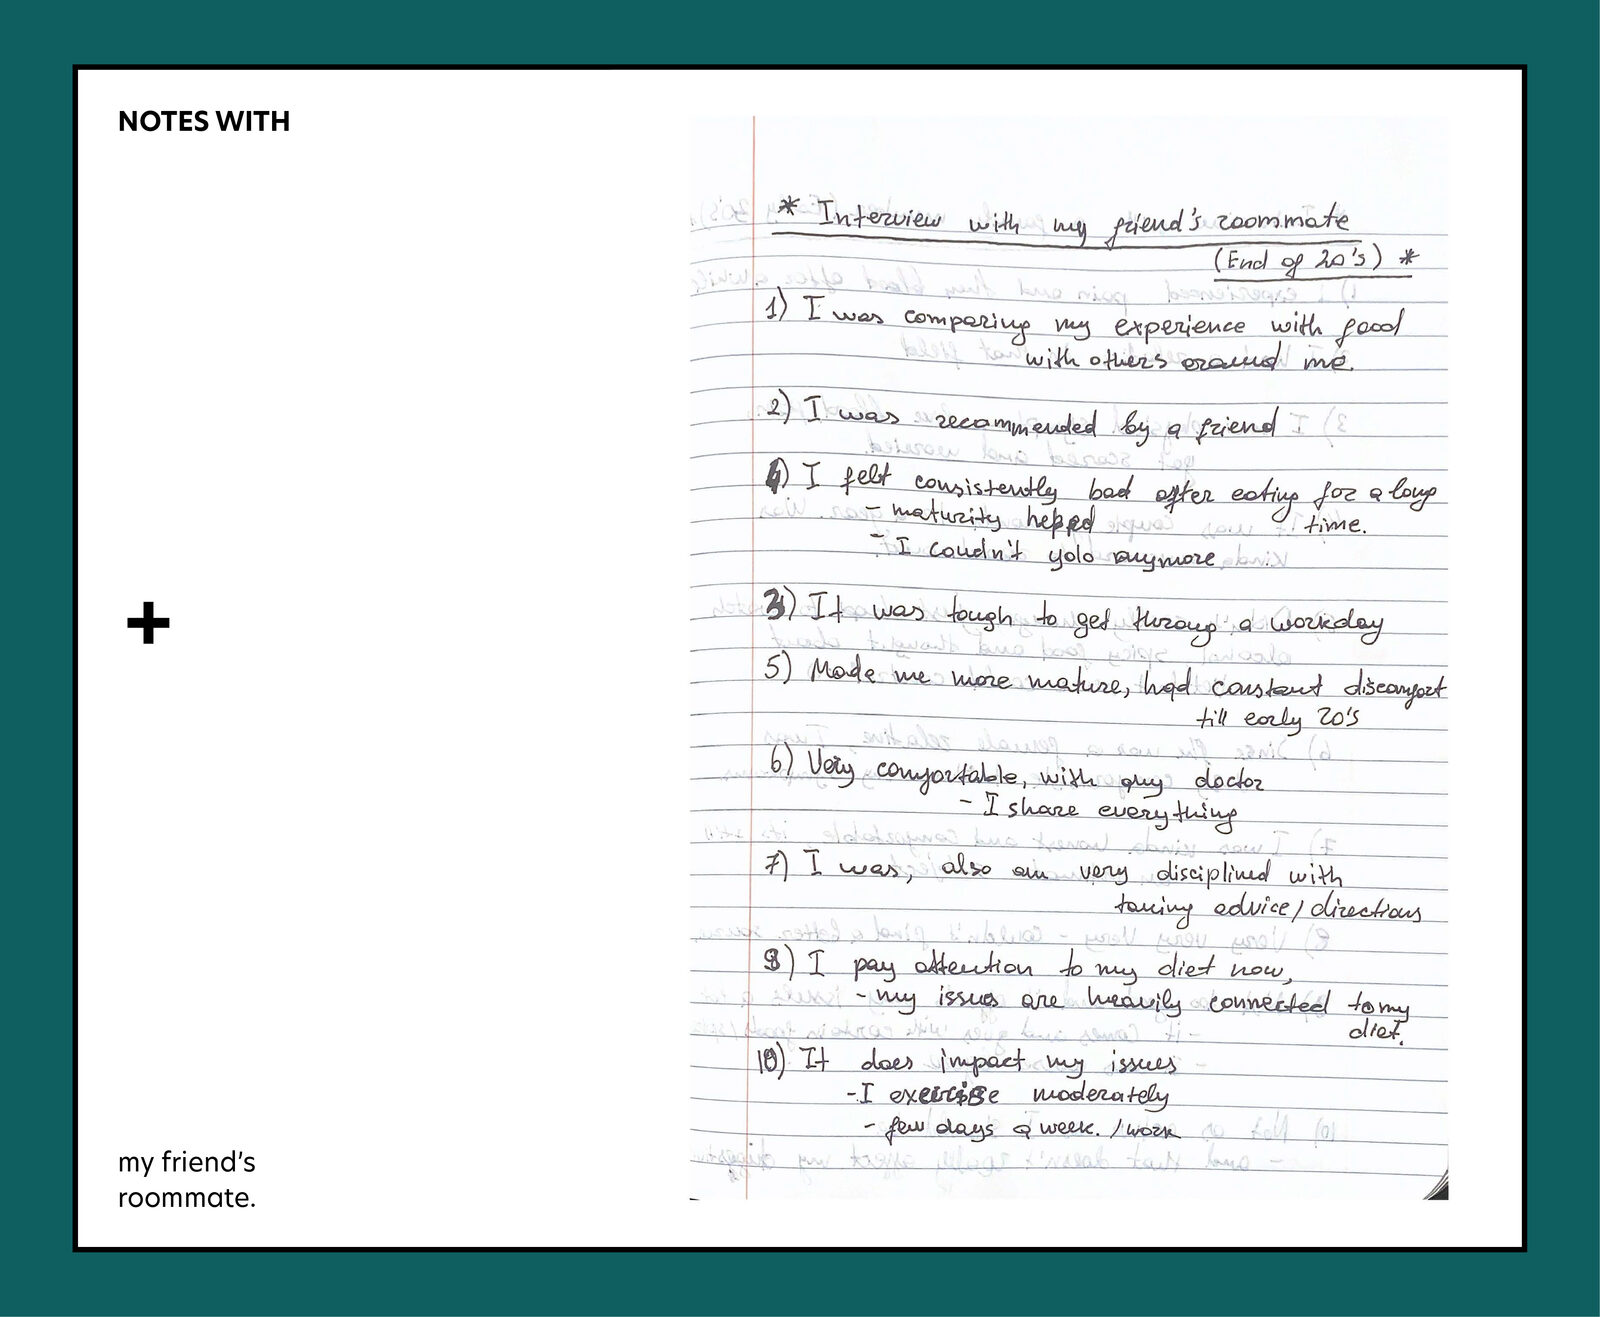 NOTES WITH
+
my friend's
roommate.
* Interview with my friend's roommate
(End of 20's) *
1) I was comparing my experience with food
with others around me.
2) I was recommended by a friend
4) I felt consistently bad after eating for a long
time.
- maturity helped
- I coudn't yolo anymore
3) It was tough to get throug a workday
5) Made me more mature, had constant discomfort
till early 20's
6) Very comfortable, with my doctor
- I share everything
7) I was, also am very disciplined with
taking advice/directions
8) I pay attention to my diet now,
- my issues are heavily connected to my
diet.
10) It does impact my issues
- I exercise moderately
- few days a week. /work